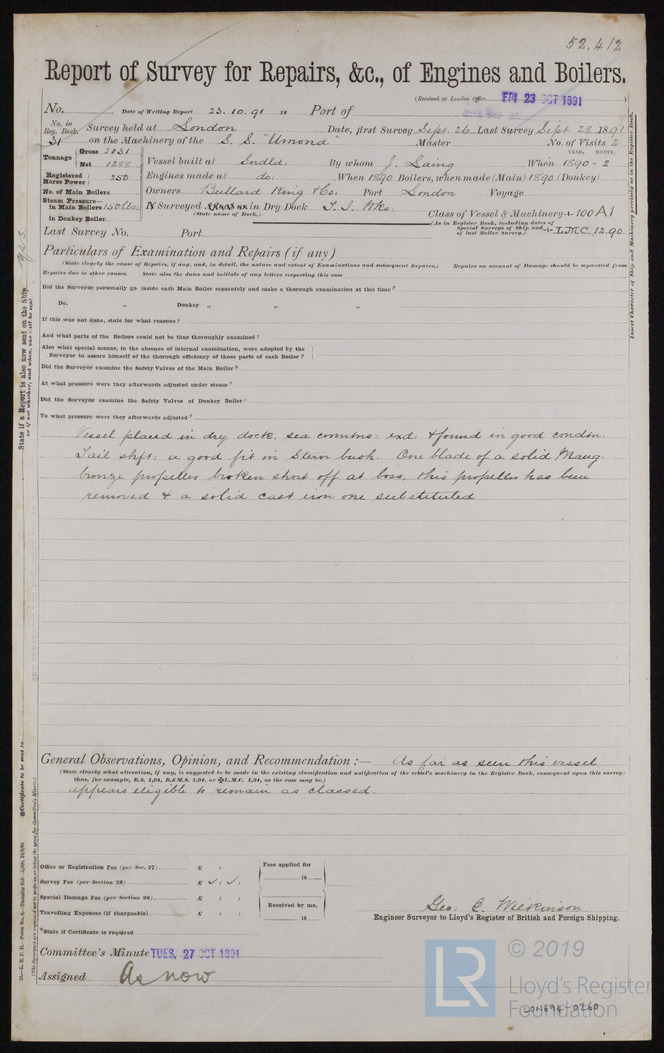 52.412
Report of Survey for Repairs, &c., of Engines and Boilers.
(Received at London Office FRI 23 OCT 1891 )
No. Date of Writing Report 23.10.91 18 Port of
No. in Reg. Book. Survey held at London Date, first Survey Sept. 26 Last Survey Sept. 28 1891
31 on the Machinery of the S.S. "Umona" Master No. of Visits 2
Tonnage Gross 2031 Net 1288 Vessel built at Sndld. By whom J. Laing When 1890 - 2
YEAR. MONTH.
Registered Horse Power 250 Engines made at do: When 1890 Boilers, when made (Main) 1890 (Donkey)
No. of Main Boilers Owners Bullard King & Co. Port London Voyage
Steam Pressure— in Main Boilers 150 lbs. If Surveyed in Dry Dock T.I. Wks.
in Donkey Boiler (State name of Dock.) Class of Vessel & Machinery 100A1
(As in Register Book, including dates of Special Surveys of Ship and of last Boiler Survey.) L.M.C. 12.90
Last Survey No. Port
Particulars of Examination and Repairs (if any)
(State clearly the cause of Repairs, if any, and, in detail, the nature and extent of Examinations and subsequent Repairs.) Repairs on account of Damage should be separated from
Repairs due to other causes. State also the dates and initials of any letters respecting this case
Did the Surveyor personally go inside each Main Boiler separately and make a thorough examination at this time?
Do. „ Donkey „ „ „
If this was not done, state for what reasons?
And what parts of the Boilers could not be thus thoroughly examined?
Also what special means, in the absence of internal examination, were adopted by the
Surveyor to assure himself of the thorough efficiency of those parts of each Boiler?
Did the Surveyor examine the Safety Valves of the Main Boiler?
At what pressure were they afterwards adjusted under steam?
Did the Surveyor examine the Safety Valves of Donkey Boiler?
To what pressure were they afterwards adjusted?
Vessel placed in dry dock, sea conntns: exd: & found in good condtn:
Tail shft: a good fit in Stern bush. One blade of a solid Mang:
bronze propeller broken short off at boss, this propeller has been
removed & a solid cast iron one substituted
General Observations, Opinion, and Recommendation :— As far as seen this vessel
(State clearly what alteration, if any, is suggested to be made in the existing classification and notification of the vessel's machinery in the Register Book, consequent upon this survey;
thus, for example, B.S. 1,91, B.&M.S. 1,91, or ✠L.M.C. 1,91, as the case may be.)
appears eligible to remain as classed.
Office or Registration Fee (per Sec. 27) £ : : Fees applied for
Survey Fee (per Section 28) £ : : 18
Special Damage Fee (per Section 28) £ : : Received by me,
Travelling Expenses (if chargeable) £ : : 18
Geo: C. Wilkinson
Engineer Surveyor to Lloyd's Register of British and Foreign Shipping.
*State if Certificate is required
Committee's Minute TUES. 27 OCT 1891
Assigned As now
State if a Report is also now sent on the Ship
or if not, whether, and when, one will be sent.
Insert Character of Ship and Machinery precisely as in the Register Book.
LR © 2019
Lloyd's Register
Foundation
LON694-0260